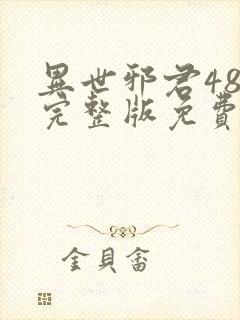 異世邪君48
完整版免費
金貝畜